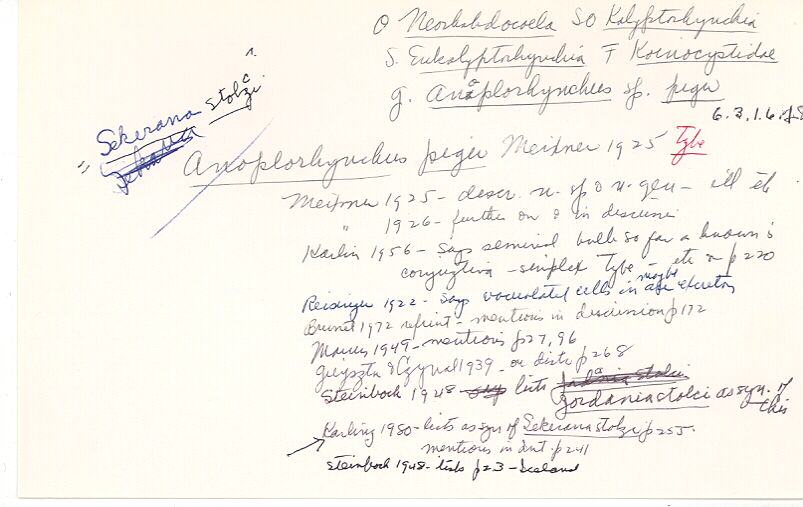 O Neorhabdocoela SO Kalyptorhynchia
S. Eukalyptorhynchia F Koinocystidae
g. Anoplorhynchus sp. piger
6.3.1.6
Sekerana stolzi
" Anoplorhynchus piger Meixner 1925 Type
Meixner 1925 - descr. n. sp & n. gen - ill etc
" 1926 - further on in discussion
Karlin 1956 - says seminal bulb so far as known is
conjunctiva - simplex Type - etc p 220
Reisinger 1922 - says vacuolated cells in maybe are excretory
Brunet 1972 reprint - mentions in discussion p 172
Marcus 1949 - mentions p 27, 96
Gieysztor & 1939 - on distr p 268
Steinböck 1948 lists Jordania stolci as syn. of this
Karling 1980 - lists as syn of Sekerana stolzi p 255.
mentions in p 241
Steinböck 1948 - lists p 23 - Iceland